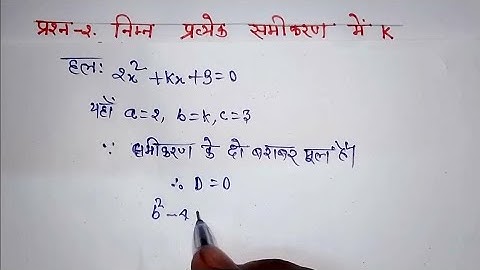 प्रश्न-२. निम्न प्रत्येक समीकरण में K
हल: 2x² + Kx + 3 = 0
यहाँ a = 2, b = k, c = 3
∵ समीकरण के दो बराबर मूल हैं।
∴ D = 0
b² - 4